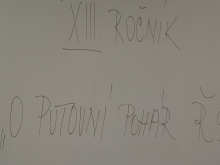 XIII. ROČNÍK
„O PUTOVNÍ POHÁR